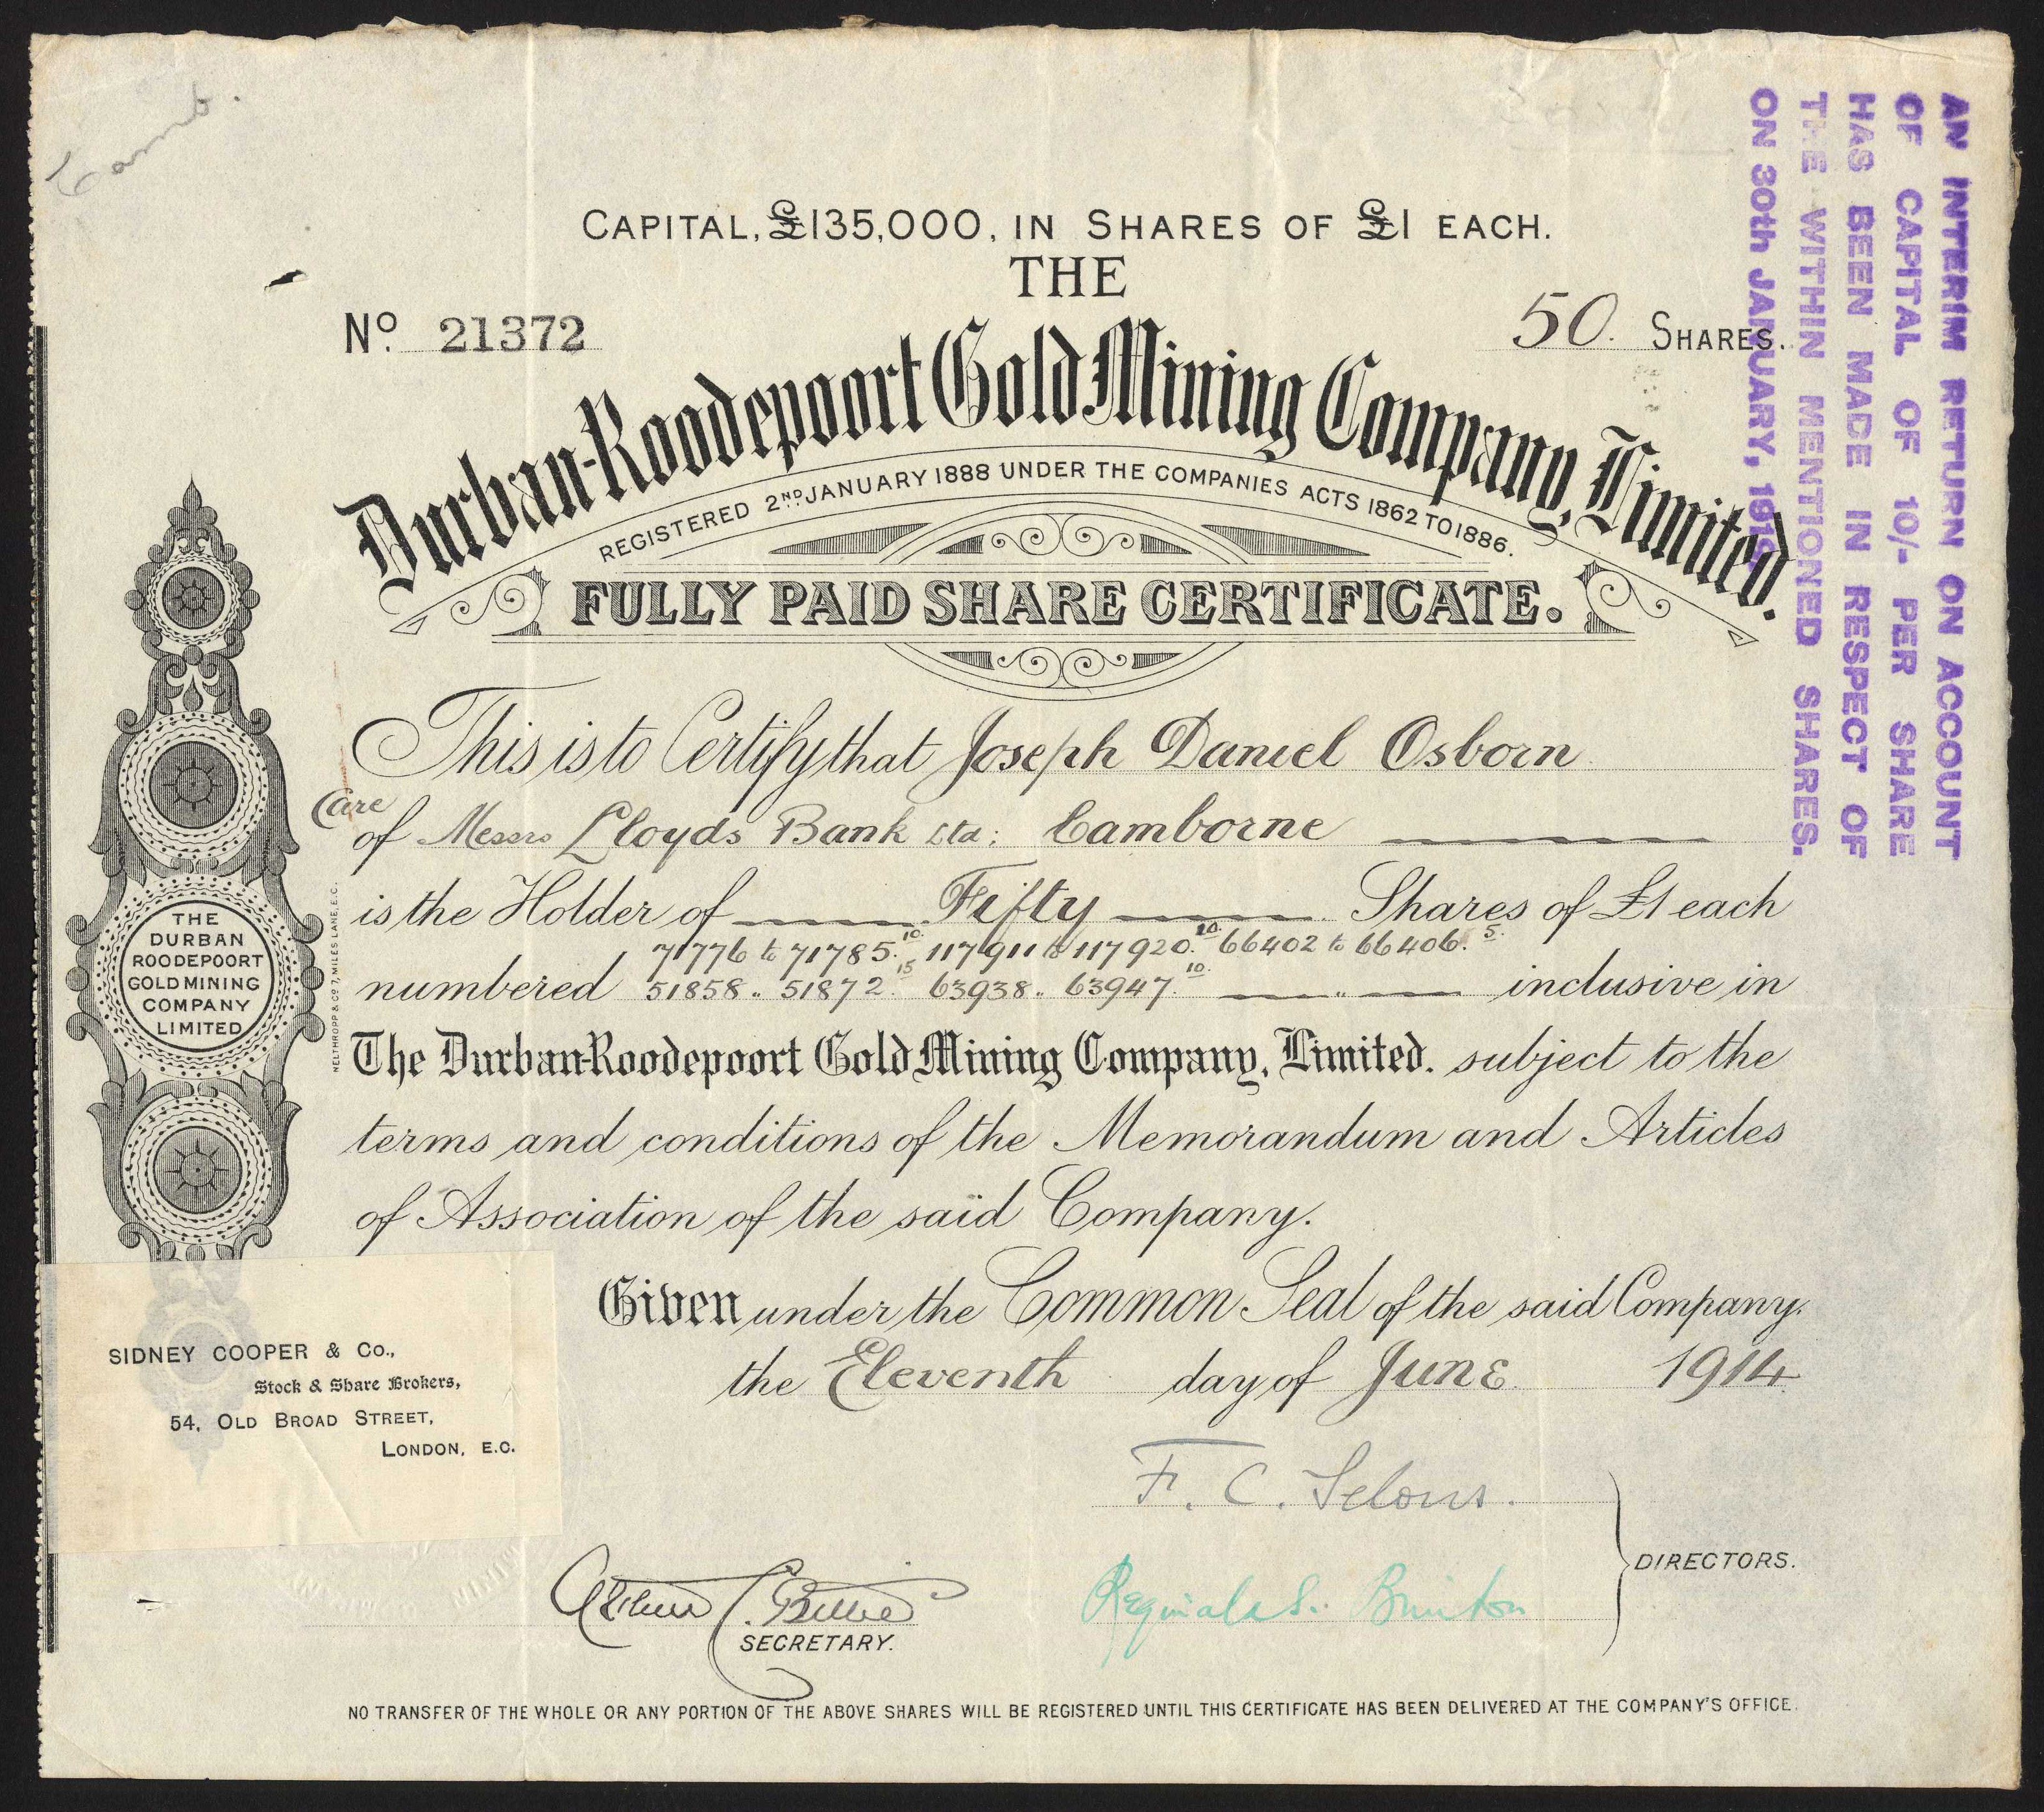 Camb.
CAPITAL, £135,000, IN SHARES OF £1 EACH.
THE
No. 21372
50. SHARES.
Durban-Roodepoort Gold Mining Company, Limited.
REGISTERED 2ND JANUARY 1888 UNDER THE COMPANIES ACTS 1862 TO 1886.
FULLY PAID SHARE CERTIFICATE.
This is to Certify that Joseph Daniel Osborn
Care
of Messrs Lloyds Bank Ltd: Camborne
is the Holder of Fifty Shares of £1 each
71776 to 71785. 10. 117911 to 117920. 10. 66402 to 66406. 5.
numbered 51858 .. 51872. 15 63938 .. 63947. 10. " inclusive in
The Durban-Roodepoort Gold Mining Company, Limited. subject to the
terms and conditions of the Memorandum and Articles
of Association of the said Company.
Given under the Common Seal of the said Company.
the Eleventh day of June 1914
F. C. Selous.
Reginald S. Brinton
DIRECTORS.
SECRETARY.
NO TRANSFER OF THE WHOLE OR ANY PORTION OF THE ABOVE SHARES WILL BE REGISTERED UNTIL THIS CERTIFICATE HAS BEEN DELIVERED AT THE COMPANY'S OFFICE.
THE
DURBAN
ROODEPOORT
GOLD MINING
COMPANY
LIMITED
NELTHROPP & CO 7, MILES LANE, E.C.
SIDNEY COOPER & Co.,
Stock & Share Brokers,
54, OLD BROAD STREET,
LONDON, E.C.
AN INTERIM RETURN ON ACCOUNT
OF CAPITAL OF 10/- PER SHARE
HAS BEEN MADE IN RESPECT OF
THE WITHIN MENTIONED SHARES.
ON 30th JANUARY,